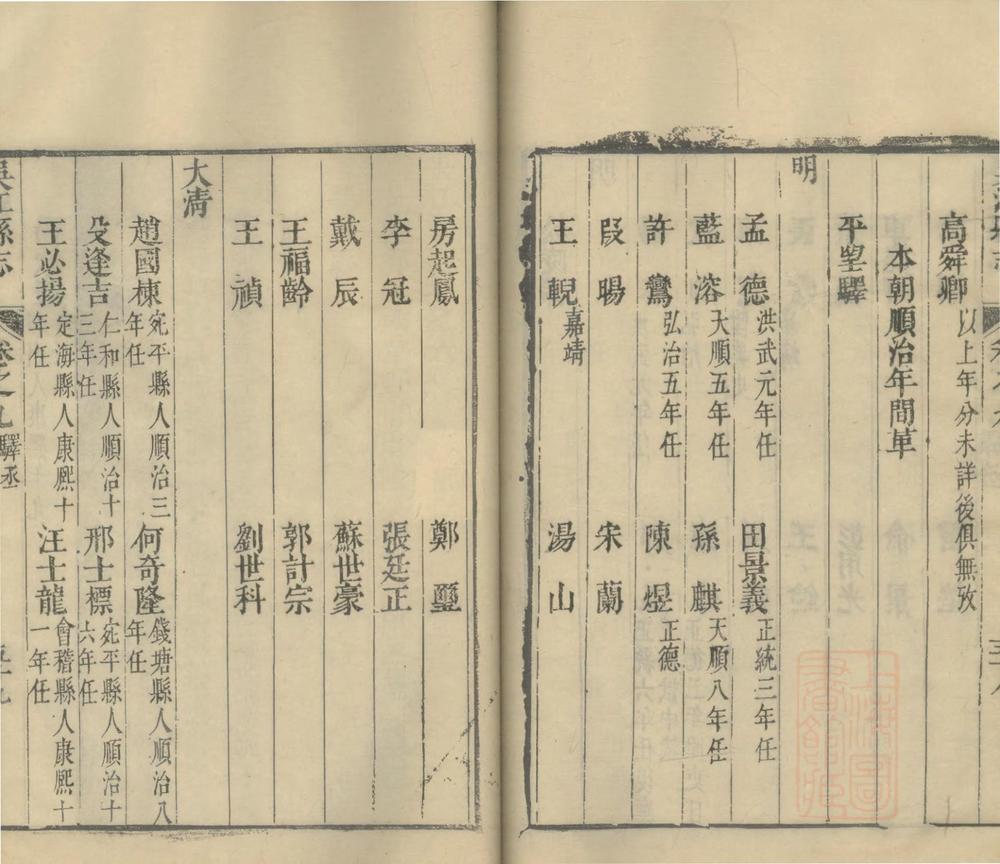 高舜卿以上年分未詳後俱無攷
本朝順治年間革
平望驛
明
孟德洪武元年任 田景義正統三年任
藍溶天順五年任 孫麒天順八年任
許鸞弘治五年任 陳煜正德
段暘 宋蘭
王輗嘉靖 湯山
房起鳳 鄭璽
李冠 張廷正
戴辰 蘇世豪
王福齡 郭計宗
王禎 劉世科
大清
趙國棟宛平縣人順治三年任 何奇隆錢塘縣人順治八年任
殳逢吉仁和縣人順治十三年任 邢士標宛平縣人順治十六年任
王必揚定海縣人康熙十年任 汪士龍會稽縣人康熙十一年任
吳江縣志 卷之九 驛丞 五十九